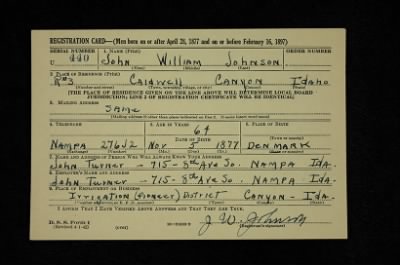 REGISTRATION CARD—(Men born on or after April 28, 1877 and on or before February 16, 1897)
SERIAL NUMBER 1. NAME (Print) ORDER NUMBER
U 440 John William Johnson
(First) (Middle) (Last)
2. PLACE OF RESIDENCE (Print)
R#3 Caldwell Canyon Idaho
(Number and street) (Town, township, village, or city) (County) (State)
[THE PLACE OF RESIDENCE GIVEN ON THE LINE ABOVE WILL DETERMINE LOCAL BOARD
JURISDICTION; LINE 2 OF REGISTRATION CERTIFICATE WILL BE IDENTICAL]
3. MAILING ADDRESS
Same
[Mailing address if other than place indicated on line 2. If same insert word same]
4. TELEPHONE 5. AGE IN YEARS 6. PLACE OF BIRTH
64
DATE OF BIRTH (Town or county)
Nampa 276J2 Nov 5 1877 Denmark
(Mo.) (Day) (Yr.) (State or country)
7. NAME AND ADDRESS OF PERSON WHO WILL ALWAYS KNOW YOUR ADDRESS
John Turner - 715 - 8th Ave So. Nampa Ida.
8. EMPLOYER'S NAME AND ADDRESS
John Turner - 715 - 8th Ave So. Nampa Ida.
9. PLACE OF EMPLOYMENT OR BUSINESS
Irrigation (Pioneer) District Canyon - Ida.
I AFFIRM THAT I HAVE VERIFIED ABOVE ANSWERS AND THAT THEY ARE TRUE.
D. S. S. Form 1
(Revised 4-1-42) (over) J. W. Johnson
(Registrant's signature)